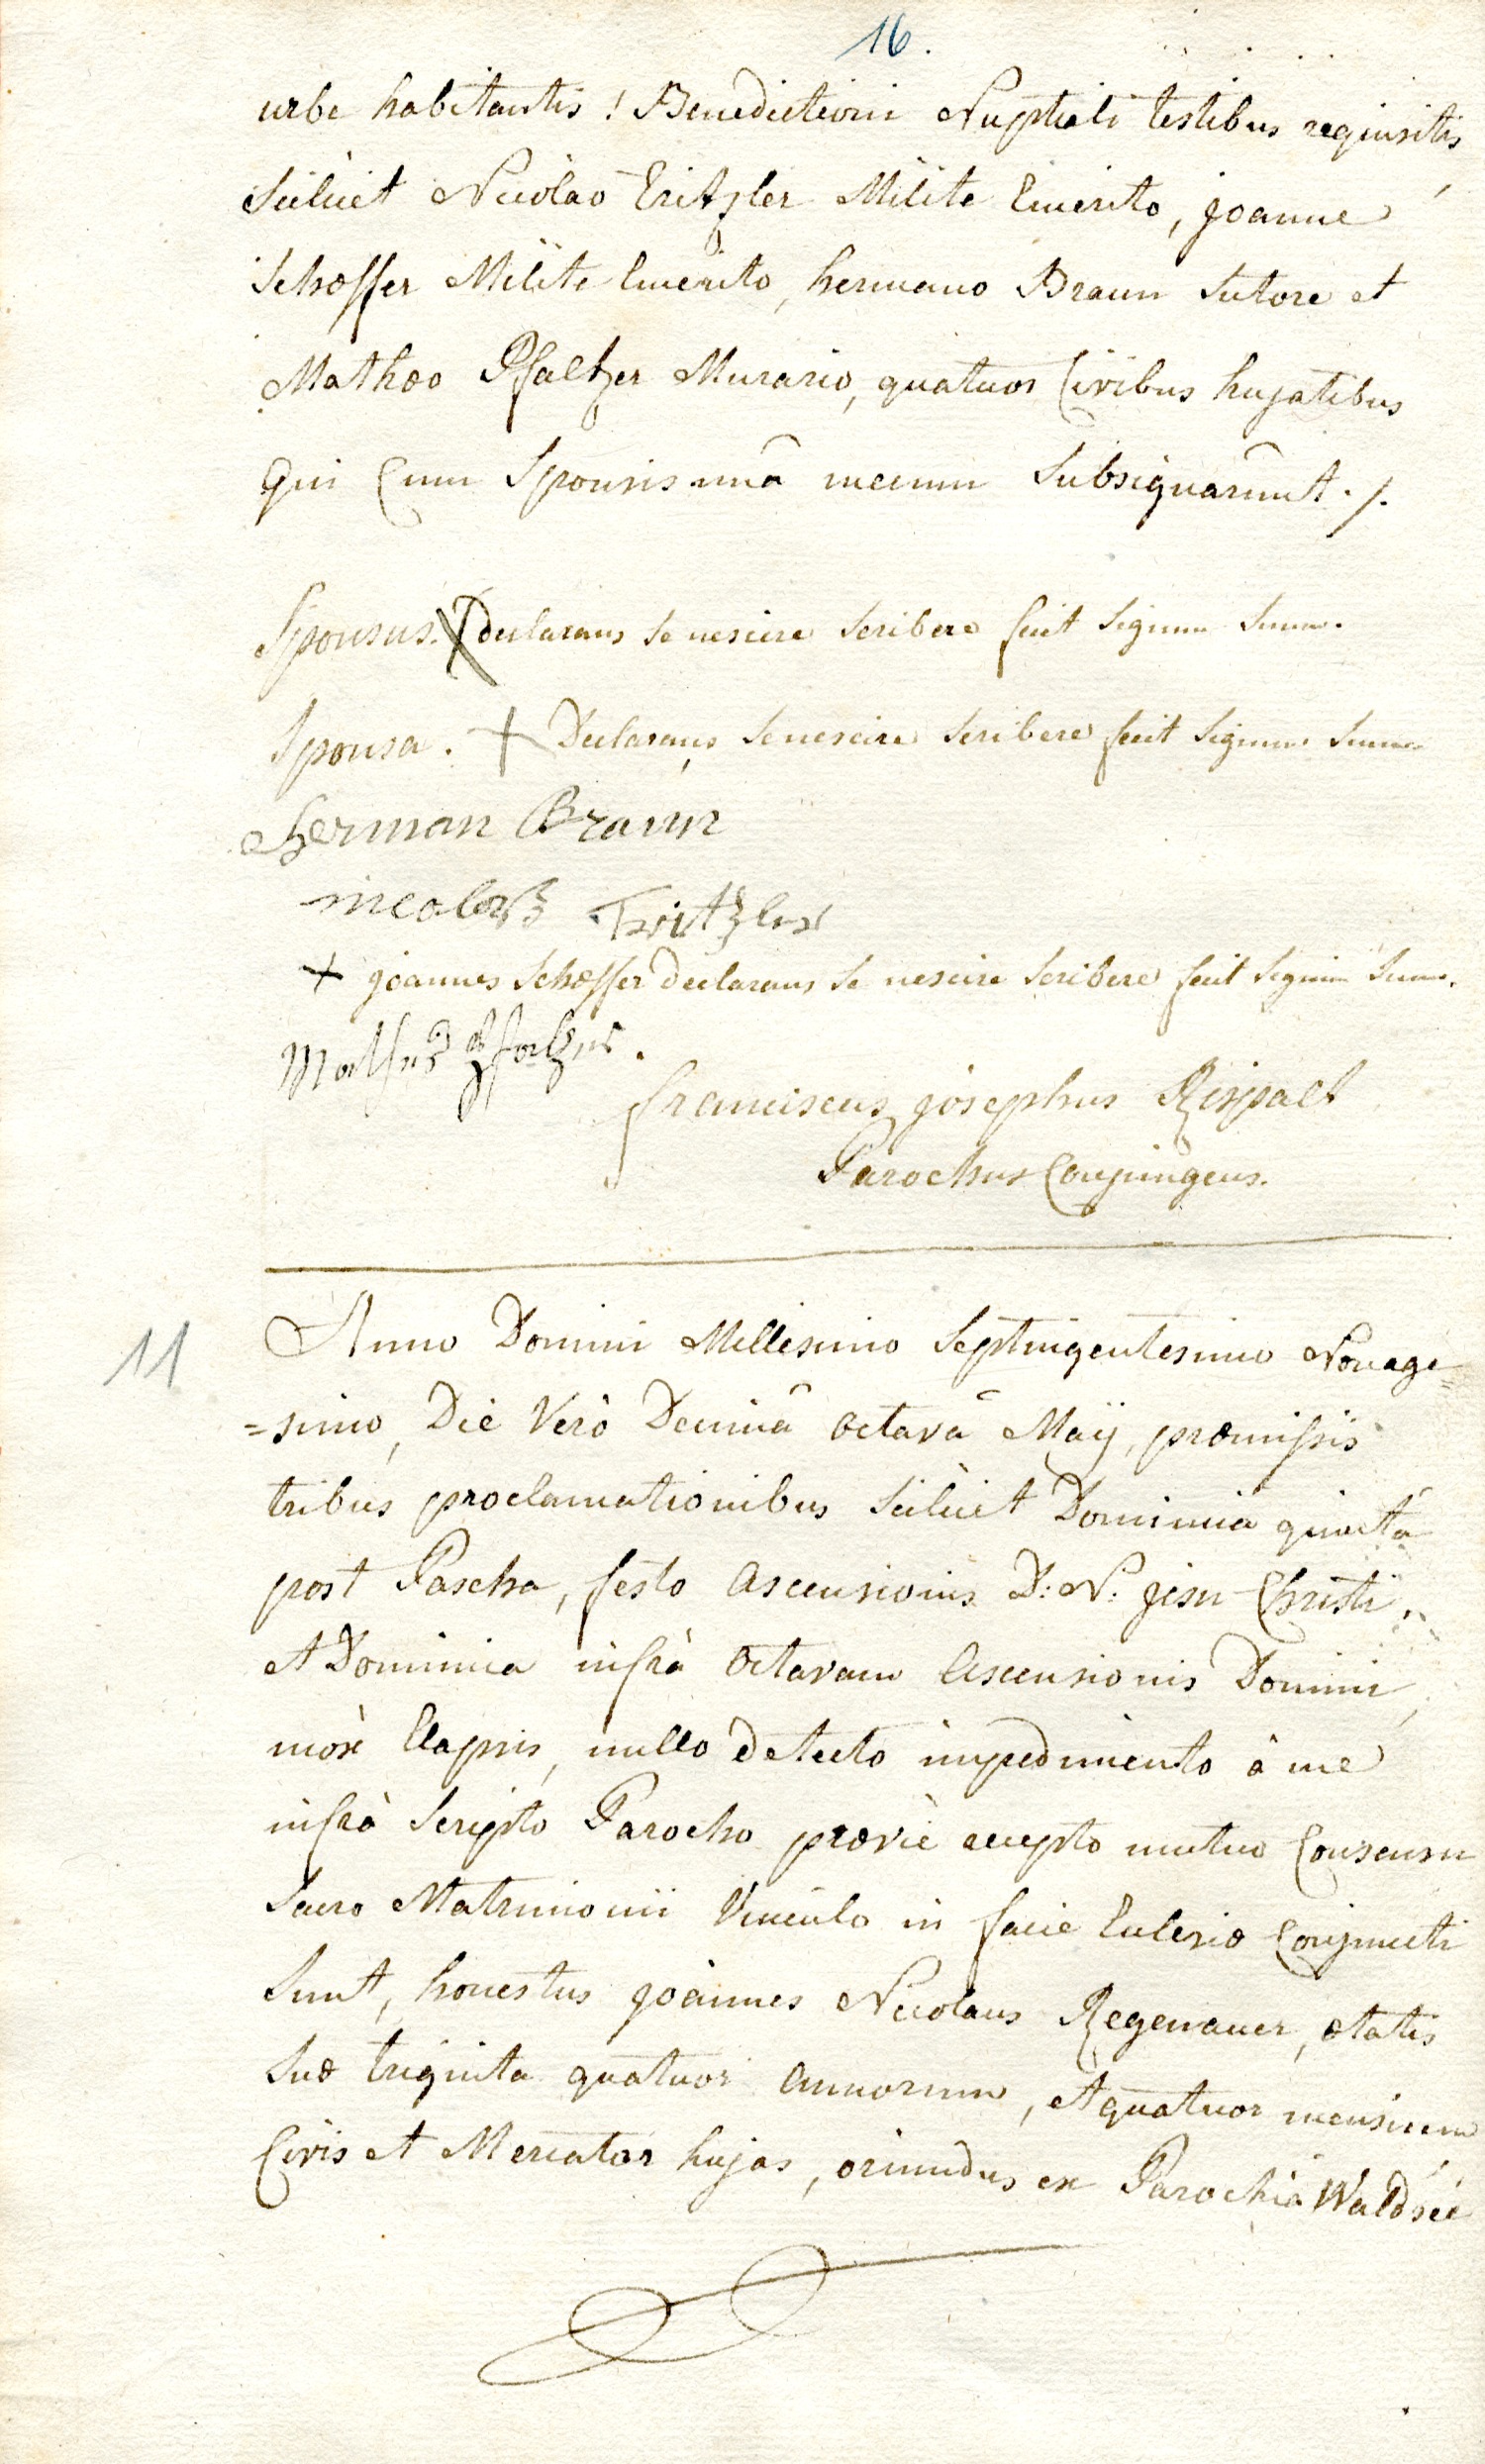 16.
urbe habitantis! Benedictioni Nuptiali testibus requisitis
Scilicet Nicolao Tritzler Milite Emerito, joanne
Schoeffer Milite Emerito, hermano Braun Sutore et
Mathæo Pfaltzer Murario, quatuor Civibus hujatibus
Qui Cum Sponsis unâ mecum Subsignarunt ./.
Sponsus. X declarans Se nescire Scribere fecit Signum Suum.
Sponsa. + Declarans Se nescire Scribere fecit Signum Suum
Herman Braun
nicolaus Tritzler
+ joannes Schoeffer declarans Se nescire Scribere fecit Signum Suum.
Mathes Pfaltzer.
franciscus josephus Rispalt
Parochus Conjungens.
11
Anno Domini Millesimo Septingentesimo Nonage=
=simo, Die Verò Decimâ Octavâ Maÿ, præmissis
tribus proclamationibus Scilicet Dominica quinta
post Pascha, festo Ascensionis D: N: jesu Christi,
et Dominica infrà Octavam Ascensionis Domini,
mox Elapsis, nullo detecto impedimento à me
infrà Scripto Parocho prævie accepto mutuo Consensu
Sacro Matrimonii Vinculo in facie Eclesiæ Conjuncti
Sunt, honestus joannes Nicolaus Regenauer, ætatis
Suæ triginta quatuor annorum, et quatuor mensium
Civis et Mercator hujas, oriundus ex Parochiâ Waldsée